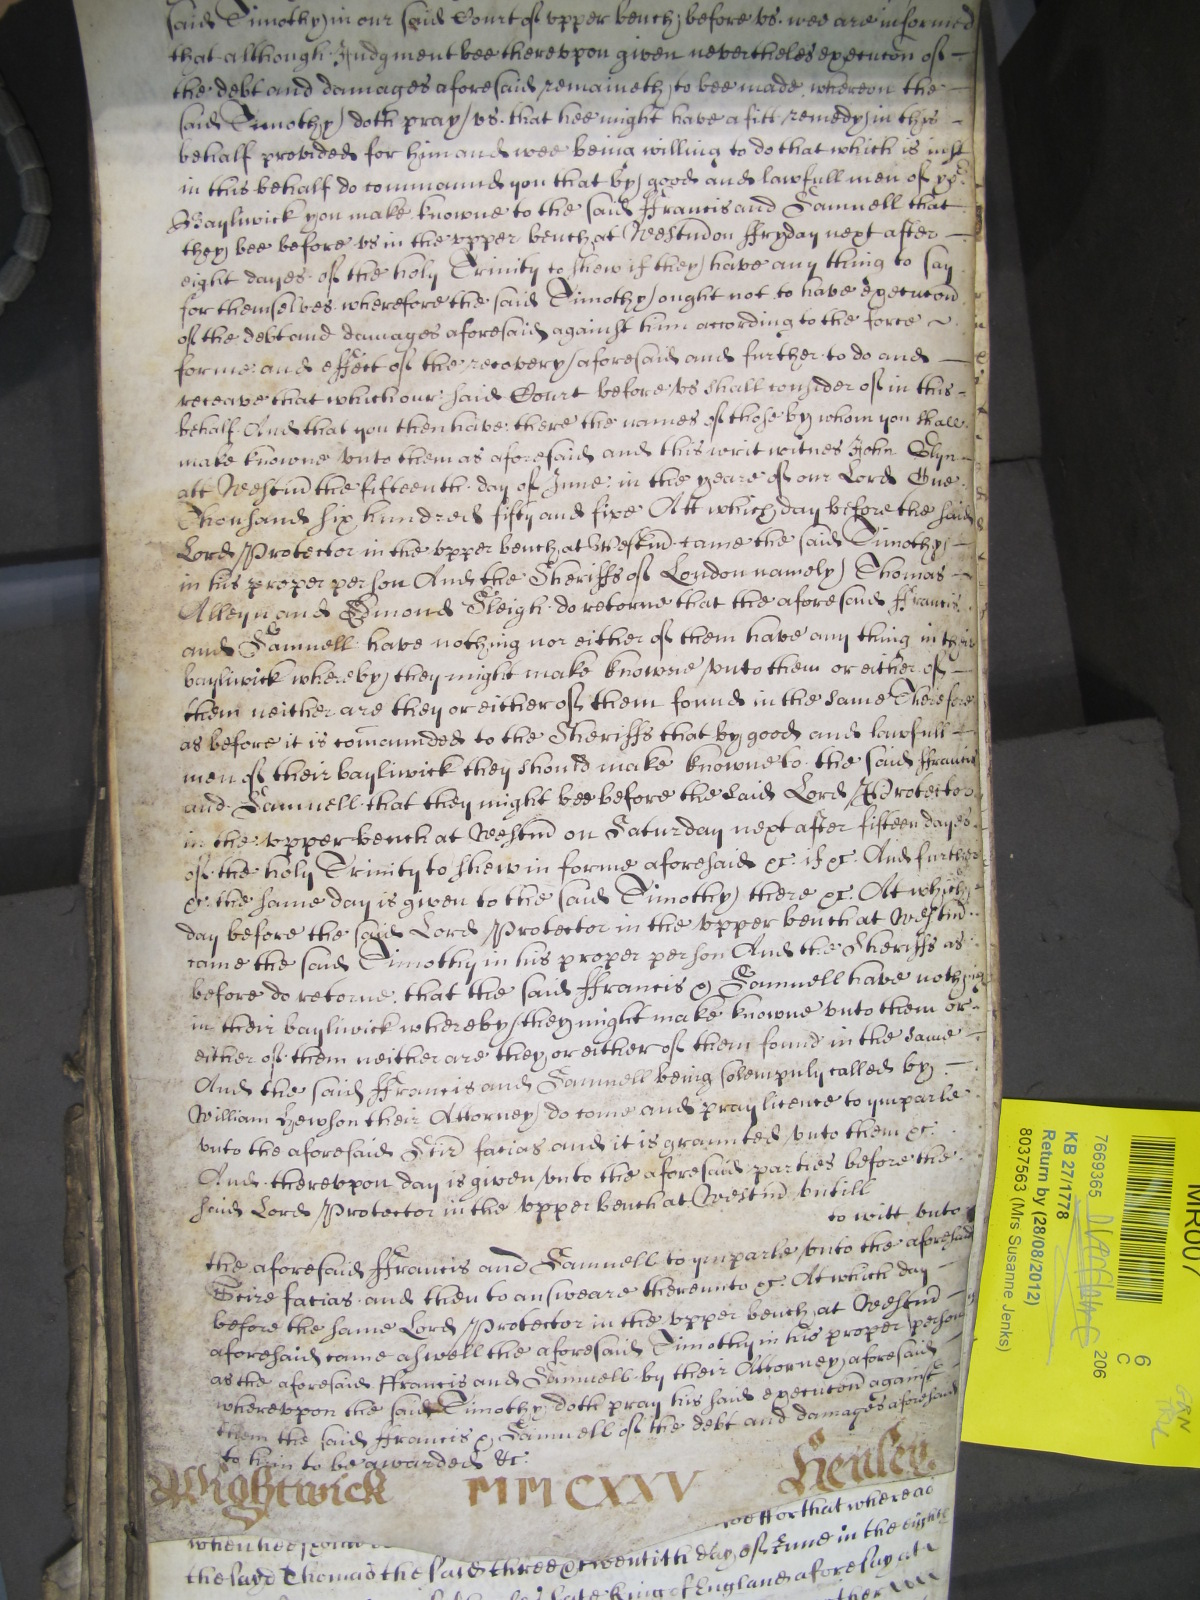 said Timothy in our said Court of upper bench before us. wee are informed
that although Judgment bee thereupon given nevertheles execucon of
the debt and damages aforesaid remaineth to bee made whereon the
said Timothy doth pray us. that hee might have a fitt remedy in this
behalf provided for him and wee being willing to do that which is just
in this behalf do commaund you that by good and lawfull men of yor
Bayliwick you make knowne to the said ffrancis and Samuell that
they bee before us in the upper bench at Westm on ffryday next after
eight dayes of the holy Trinity to shew if they have any thing to say
for themselves wherefore the said Timothy ought not to have execucon
of the debt and damages aforesaid against him according to the force
forme and effect of the recovery aforesaid and further to do and
receave that which our said Court before us shall consider of in this
behalf And that you then have there the names of those by whom you shall
make knowne unto them as aforesaid and this writ witnes John Glyn
att Westm the fifteenth day of June in the yeare of our Lord One
Thousand six hundred fifty and five Att which day before the said
Lord Protector in the upper bench at Westm came the said Timothy
in his proper person And the Sheriffs of London namely Thomas
Alleyn and Edmond Sleigh do retorne that the aforesaid ffrancis
and Samuell have nothing nor either of them have any thing in their
bayliwick whereby they might make knowne unto them or either of
them neither are they or either of them found in the same Therefore
as before it is comaunded to the Sheriffs that by good and lawfull
men of their bayliwick they should make knowne to the said ffrancis
and Samuell that they might bee before the said Lord Protector
in the upper bench at Westm on Saturday next after fifteen dayes
of the holy Trinity to shew in forme aforesaid &c. if &c. And further
&c. the same day is given to the said Timothy there &c. At which
day before the said Lord Protector in the upper bench at Westm
came the said Timothy in his proper person And the Sheriffs as
before do retorne that the said ffrancis & Samuell have nothing
in their bayliwick whereby they might make knowne unto them or
either of them neither are they or either of them found in the same
And the said ffrancis and Samuell being solempnly called by
William Hewson their Attorney do come and pray licence to imparle
unto the aforesaid Scire facias and it is graunted unto them &c.
And thereupon day is given unto the aforesaid parties before the
said Lord Protector in the upper bench at Westm untill
to witt unto
the aforesaid ffrancis and Samuell to imparle unto the aforesaid
Scire facias and then to answeare thereunto &c. At which day
before the same Lord Protector in the upper bench at Westm
aforesaid came aswell the aforesaid Timothy in his proper person
as the aforesaid ffrancis and Samuell by their Attorney aforesaid
whereupon the said Timothy doth pray his said execucon against
them the said ffrancis & Samuell of the debt and damages aforesaid
to him to be awarded &c.
Wightwick MMCXXXV Henley.
for that whereas
the sayd Thomas the said three & twentith day of June in the eight
late King of England aforesay at
MR007
6
C
7669365 206
KB 27/1778
Return by (28/08/2012)
8037563 (Mrs Susanne Jenks)